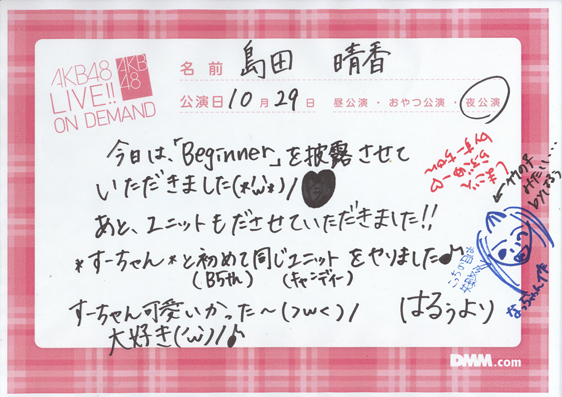 AKB48
LIVE!!
ON DEMAND
AKB
48
名前 島田 晴香
公演日 10月29日 昼公演・おやつ公演・夜公演
今日は、「Beginner」を披露させて
いただきました(*'ω'*)/
あと、ユニットもださせていただきました!!
*すーちゃん*と初めて同じユニットをやりました♪
(B5th) (キャンディー)
すーちゃん可愛いかった〜(>ω<)/
大好き('ω')/♪
はるぅより
byすーちゃん
みたい…
byはるぅ
なっちゃん作
DMM.com